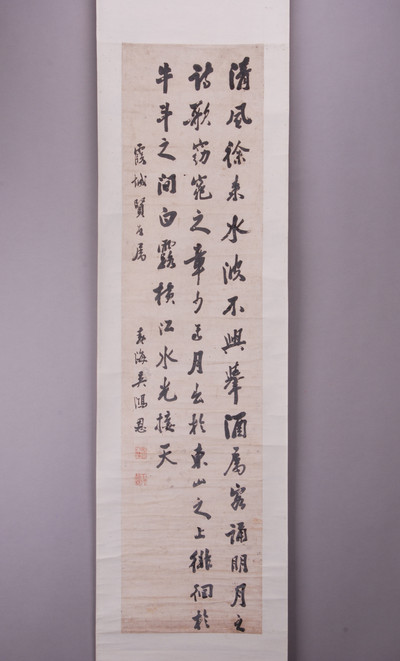 清風徐來水波不興舉酒屬客誦明月之
詩歌窈窕之章少焉月出於東山之上徘徊於
牛斗之間白露橫江水光接天
霞城賢友屬
春海吳鴻恩